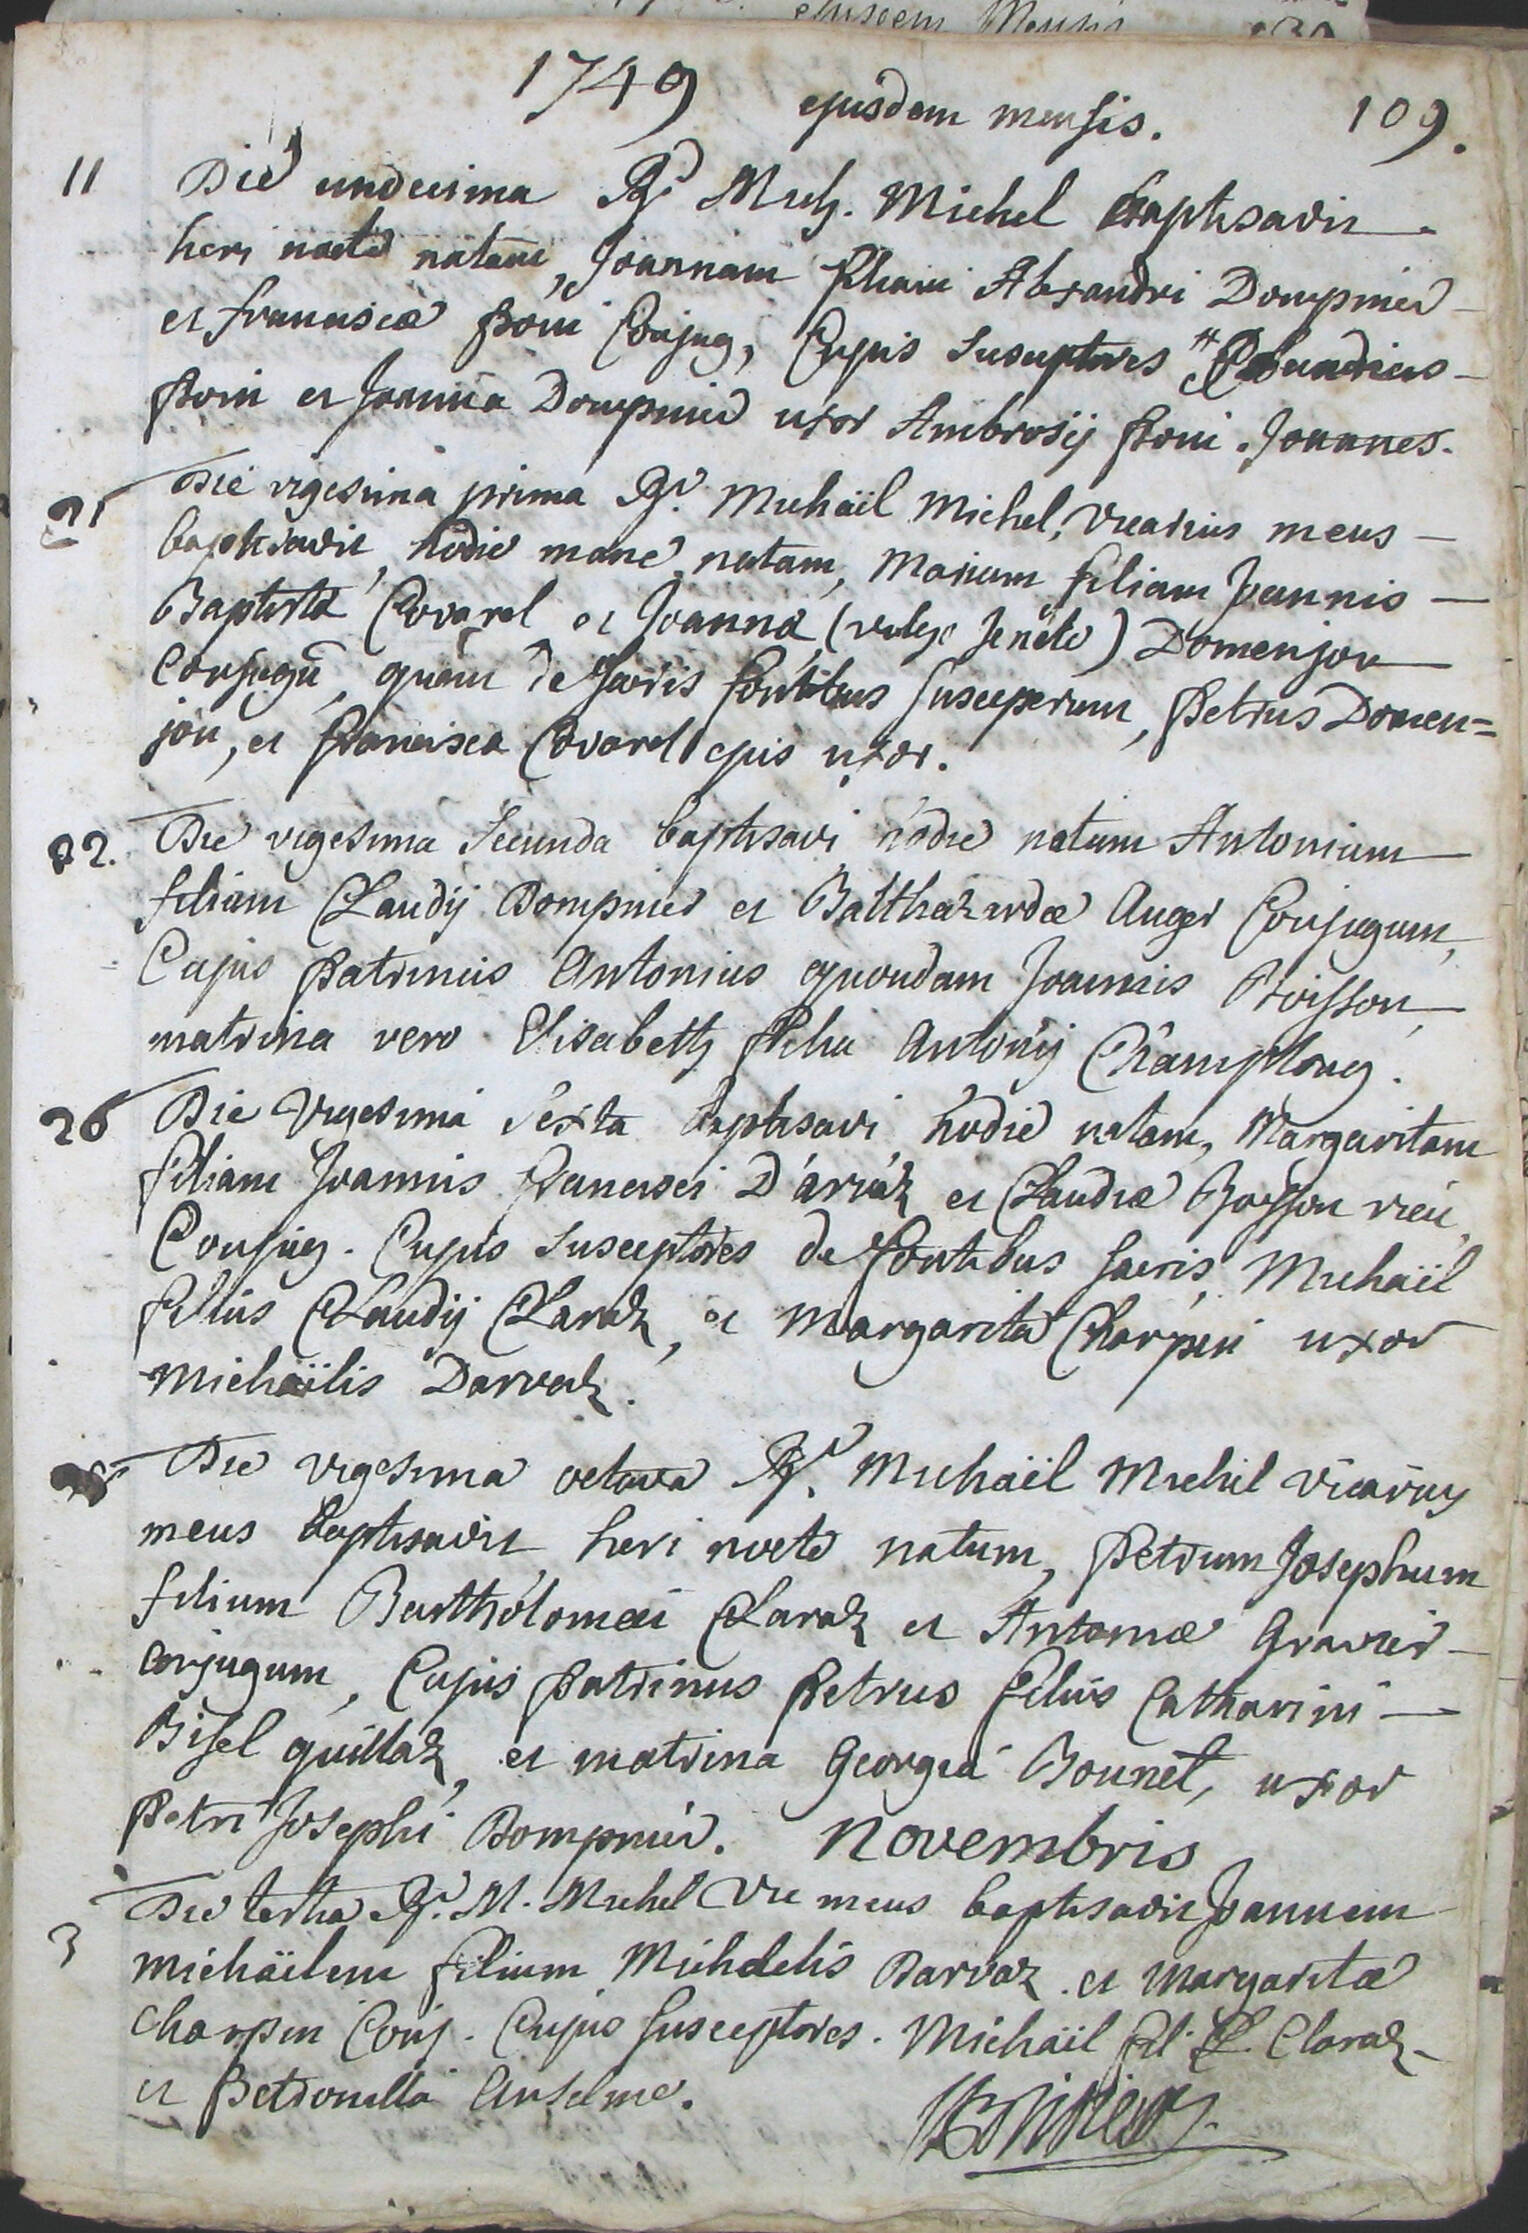 ejusdem Mensis
1749 ejusdem mensis. 109.
11 Die undecima Rd Mich. Michel baptisavit
heri nocte natam, Joannam filiam Alexandri Dompnier
et franciscæ Boni Conjug, Cujus Susceptores
Boni et Joanna Dompnier uxor Ambrosij Boni. Joannes.
21 Die vigesima prima Rd. Michaël Michel, Vicarius meus
baptisavit, hodie mane natam, Mariam filiam Joannis
Baptistæ Covarel et Joannæ (vulgo Jenete) Domenjou
Conjugū, quam de sacris fontibus susceperunt, Petrus Domen=
jou, et Francisca Covarel ejus uxor.
22. Die vigesima Secunda baptisavi hodie natum Antonium
filium Claudij Dompnier et Balthazardæ Auger Conjugum,
Cujus Patrinus Antonius quondam Joannis Boisson,
matrina vero Elisabeth filia Antonij Champlong.
26 Die Vigesima sexta baptisavi hodie natam, Margaritam
filiam Joannis Francisci Darvaz et Claudiæ Boisson vieu,
Conjug. Cujus Susceptores de fontibus sacris, Michaël
filius Claudij Claraz, et Margarita Charpin uxor
Michaïlis Darvaz.
28 Die vigesima octava Rd. Michaël Michel vicarius
meus baptisavit heri nocte natum, Petrum Josephum
filium Bartholomæi Claraz et Antoniæ Gravier
conjugum, Cujus Patrinus Petrus filius Catharini
Bisel quillaz, et matrina Georgia Bonnet, uxor
Petri Josephi Dompnier. Novembris
3 Die tertia Rd. M. Michel Vic meus baptisavit Joannem
Michaëlem filium Michaelis Darvaz et Margaritæ
Charpin Conj. Cujus Susceptores. Michaïl fil. Cl. Claraz
et Petronilla Anselme.